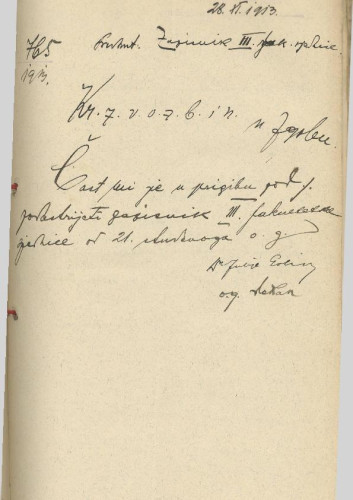 28. XI. 1913.
765
1913.
Predmet. Zapisnik III. fak. sjednice.
Kr. z. v. o. z. b. i n.
u Zagrebu.
Čast mi je u prigibu pod ·/.
podastrijeti zapisnik III. fakultetske
sjednice od 21. studenoga o. g.
Dr Julije
o. g. dekan